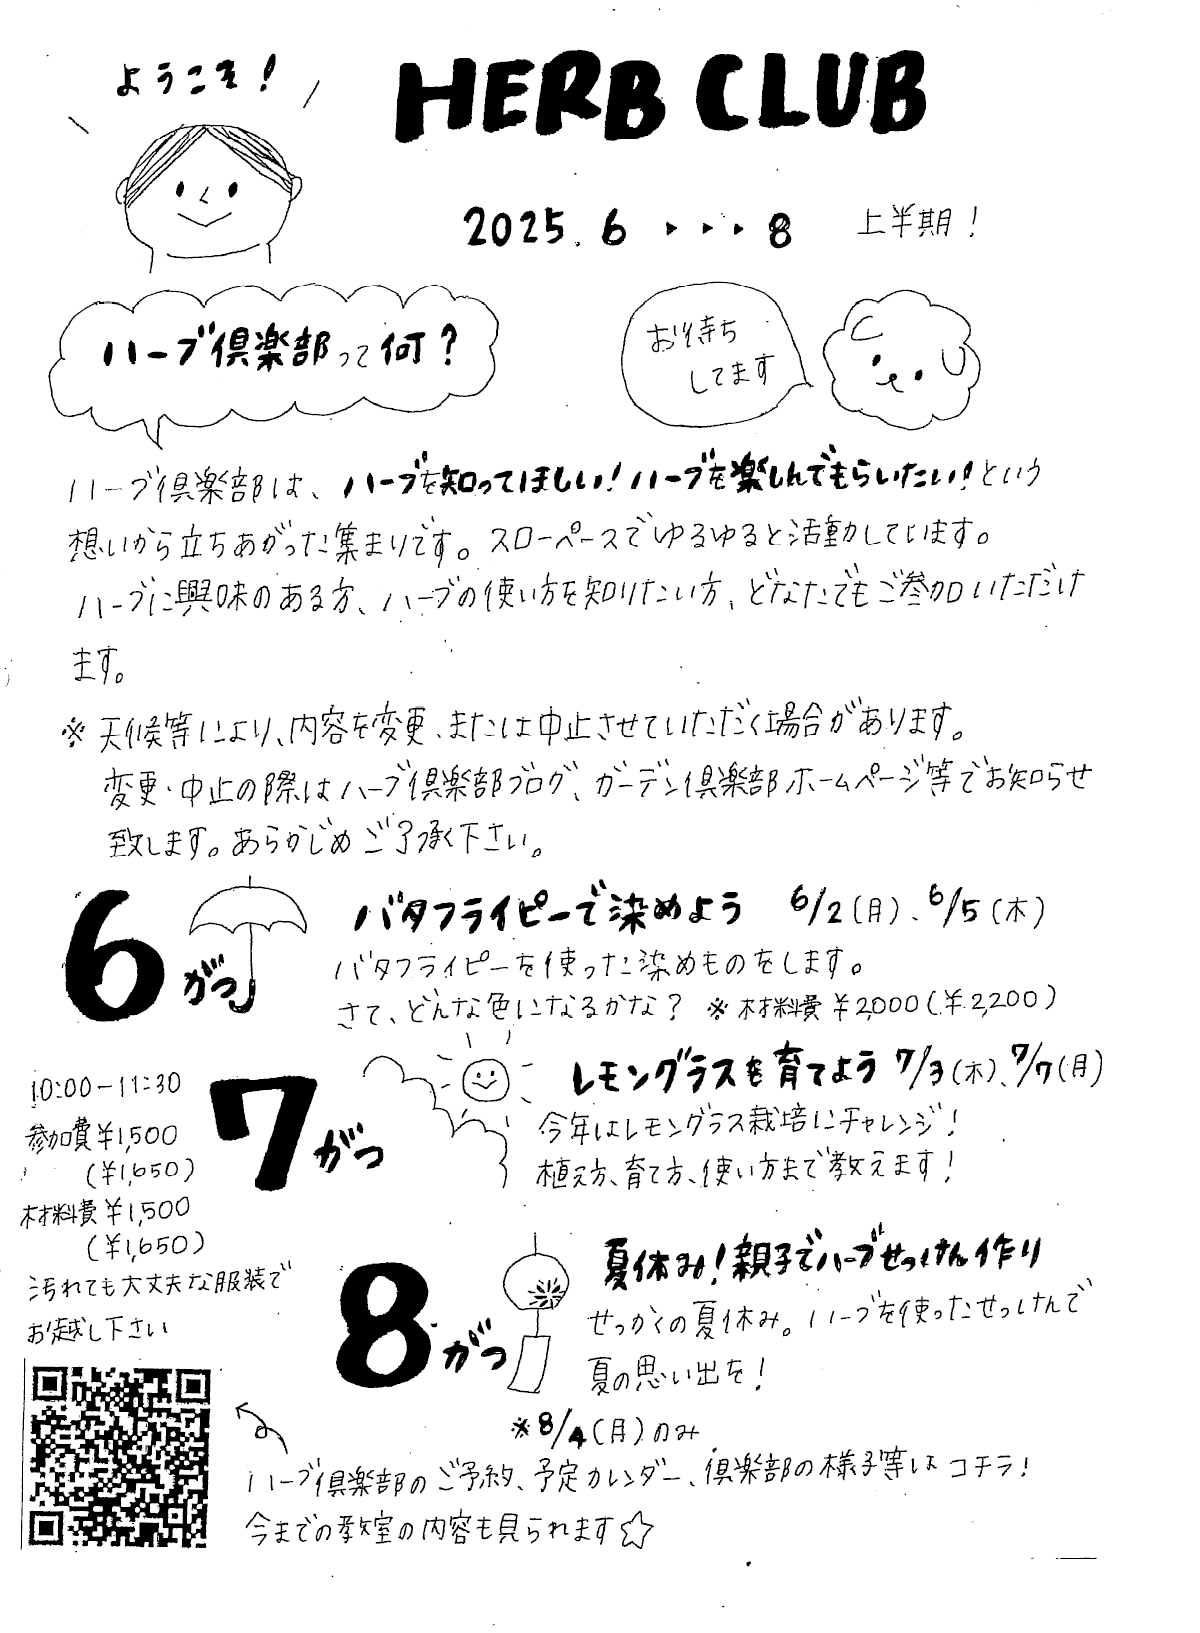 ようこそ!
HERB CLUB
2025.6 ▸▸▸ 8 上半期!
ハーブ倶楽部って何?
お待ち
してます
ハーブ倶楽部は、ハーブを知ってほしい!ハーブを楽しんでもらいたい!という
想いから立ちあがった集まりです。スローペースでゆるゆると活動しています。
ハーブに興味のある方、ハーブの使い方を知りたい方、どなたでもご参加いただけ
ます。
※天候等により、内容を変更、または中止させていただく場合があります。
変更・中止の際はハーブ倶楽部ブログ、ガーデン倶楽部ホームページ等でお知らせ
致します。あらかじめご了承下さい。
6がつ
バタフライピーで染めよう 6/2(月)、6/5(木)
バタフライピーを使った染めものをします。
さて、どんな色になるかな? ※材料費¥2,000(¥2,200)
7がつ
レモングラスを育てよう 7/3(木)、7/7(月)
今年はレモングラス栽培にチャレンジ!
植え方、育て方、使い方まで教えます!
10:00-11:30
参加費¥1,500
(¥1,650)
材料費¥1,500
(¥1,650)
汚れても大丈夫な服装で
お越し下さい
8がつ
夏休み!親子でハーブせっけん作り
せっかくの夏休み。ハーブを使ったせっけんで
夏の思い出を!
※8/4(月)のみ
ハーブ倶楽部のご予約、予定カレンダー、倶楽部の様子等はコチラ!
今までの教室の内容も見られます☆